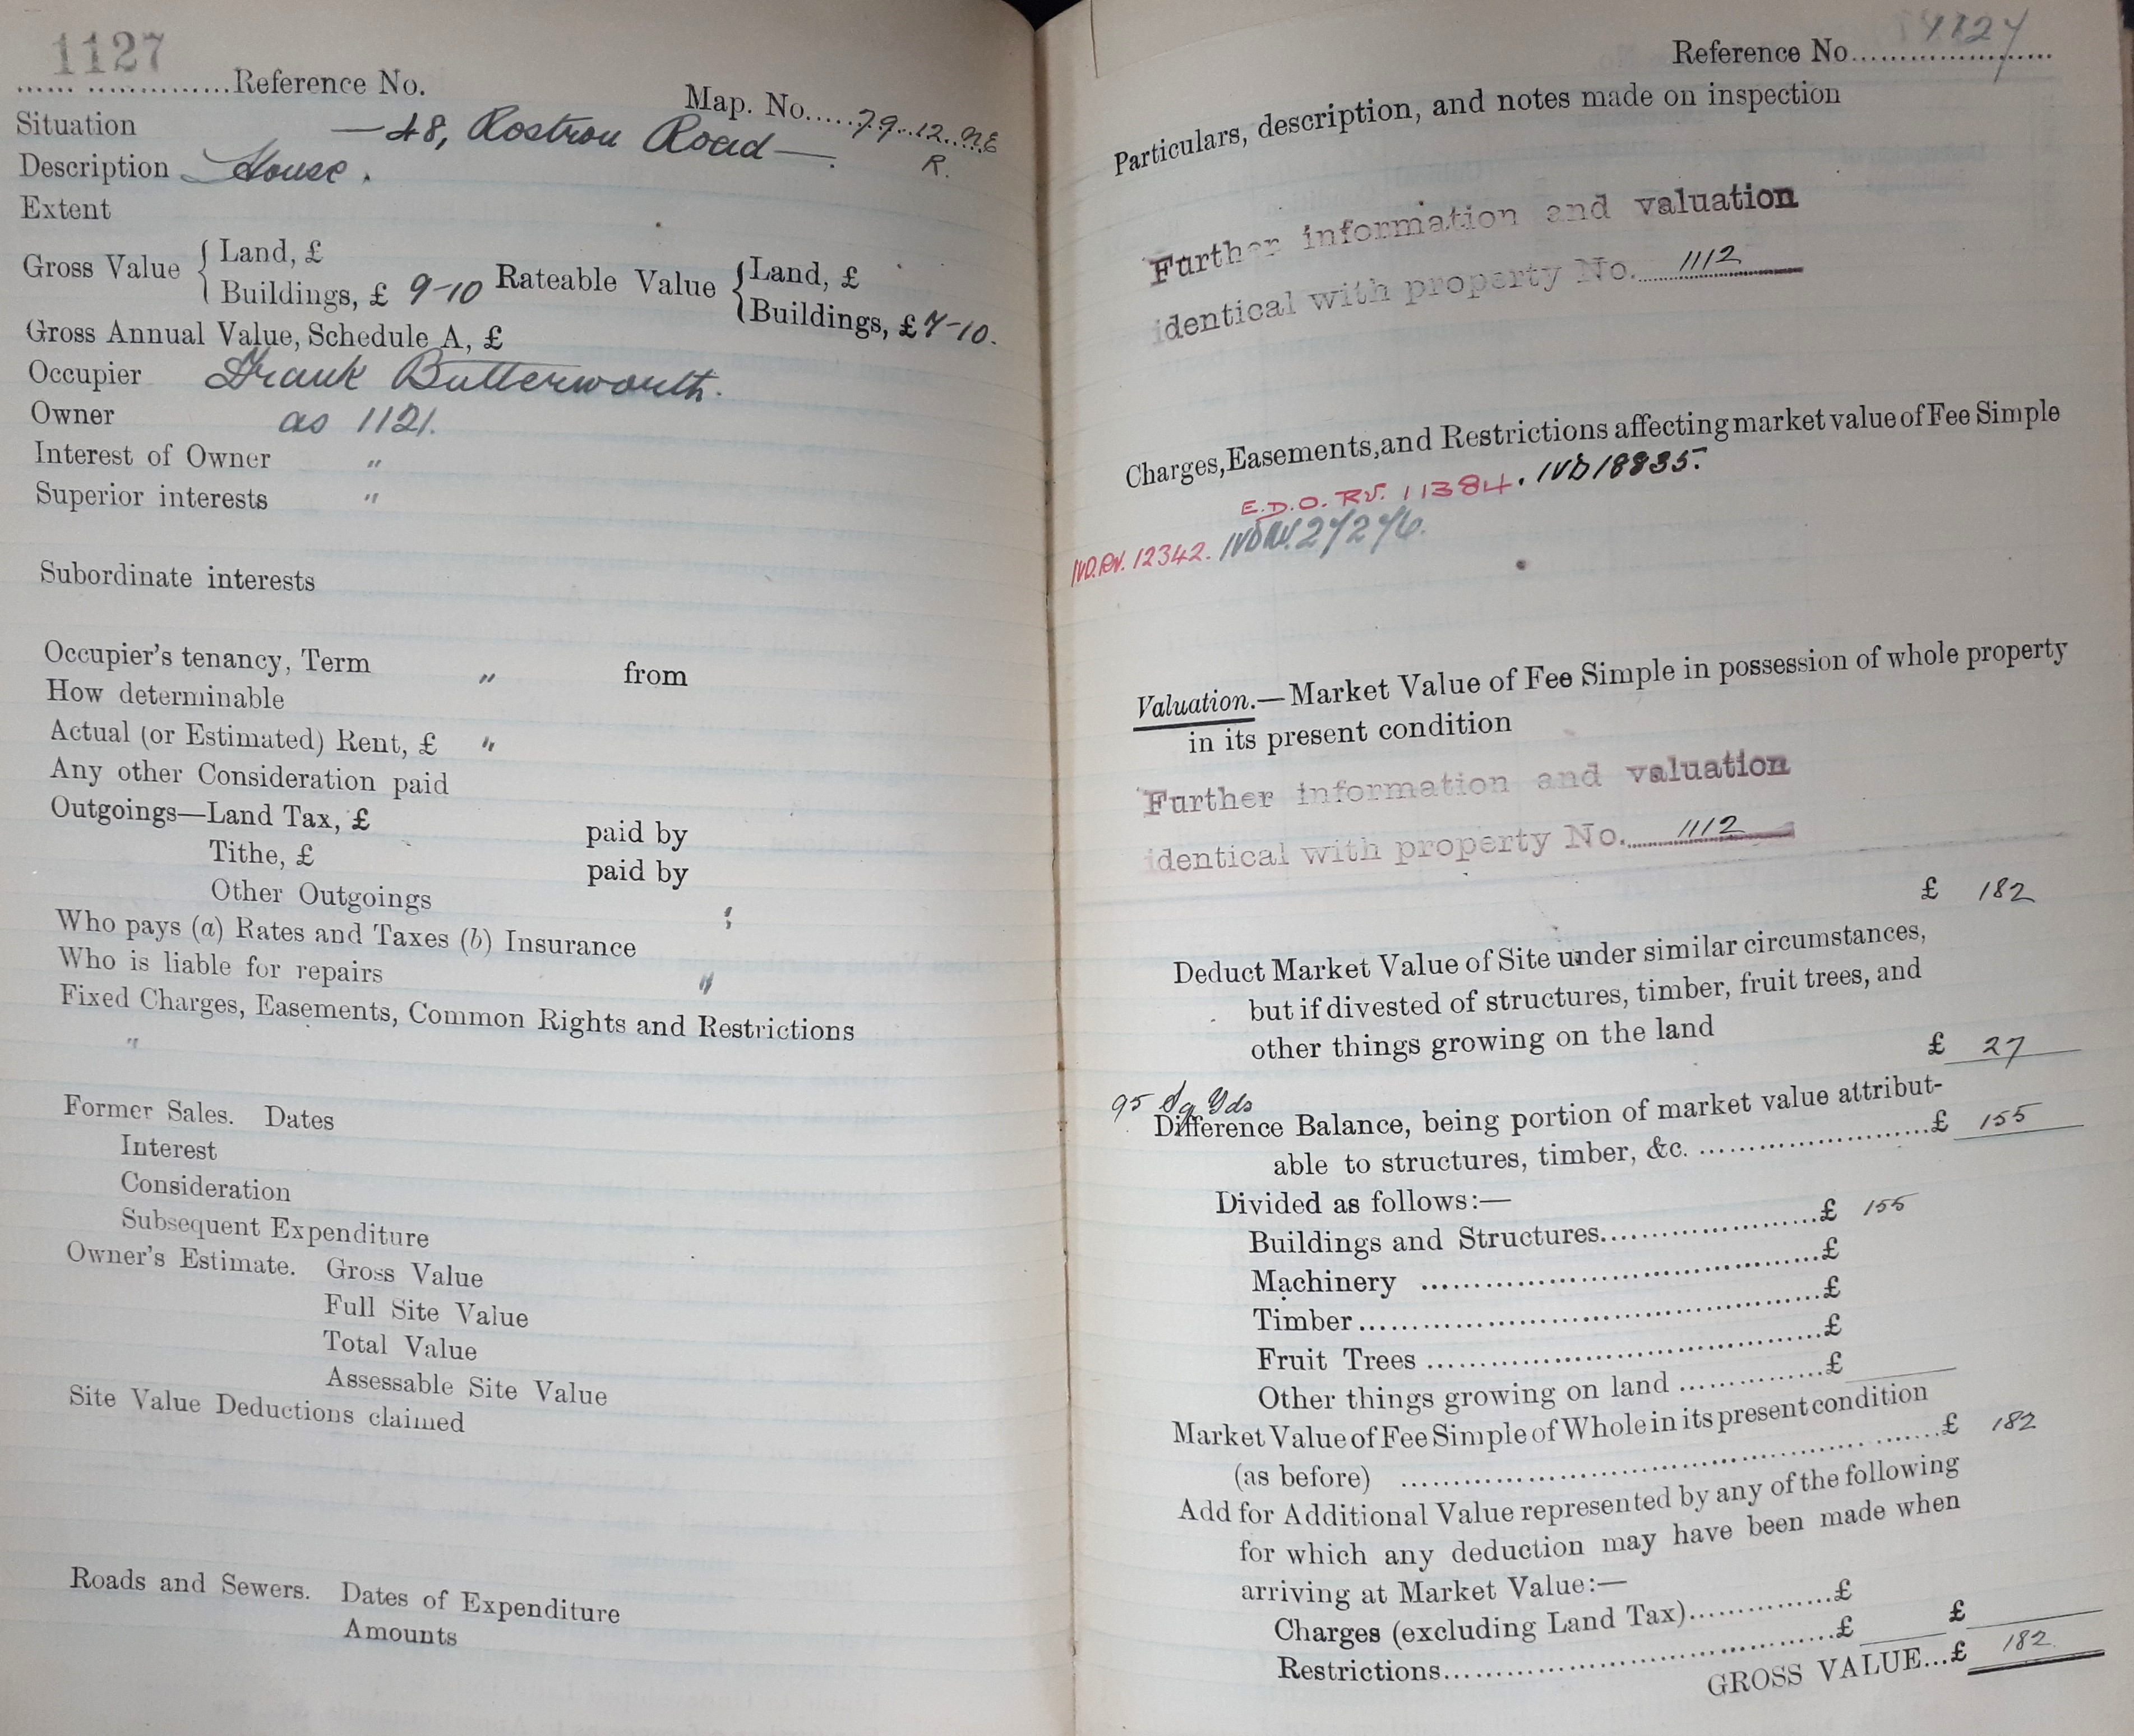 1127
Reference No.
Map. No. 79.12.NE
R.
Situation — 48, Rostron Road —.
Description House.
Extent
Gross Value { Land, £
Buildings, £ 9-10 Rateable Value { Land, £
Buildings, £ 7-10.
Gross Annual Value, Schedule A, £
Occupier Frank Butterworth.
Owner as 1121.
Interest of Owner "
Superior interests "
Subordinate interests
Occupier's tenancy, Term " from
How determinable
Actual (or Estimated) Rent, £ "
Any other Consideration paid
Outgoings—Land Tax, £ paid by
Tithe, £ paid by
Other Outgoings
Who pays (a) Rates and Taxes (b) Insurance "
Who is liable for repairs "
Fixed Charges, Easements, Common Rights and Restrictions
"
Former Sales. Dates
Interest
Consideration
Subsequent Expenditure
Owner's Estimate. Gross Value
Full Site Value
Total Value
Assessable Site Value
Site Value Deductions claimed
Roads and Sewers. Dates of Expenditure
Amounts
Reference No. 1127
Particulars, description, and notes made on inspection
Further information and valuation
identical with property No. 1112
Charges, Easements, and Restrictions affecting market value of Fee Simple
E.D.O. RV. 11384. IVD 18835.
IVD.RV. 12342. IVD RV. 27276.
Valuation.—Market Value of Fee Simple in possession of whole property
in its present condition
Further information and valuation
identical with property No. 1112
£ 182
Deduct Market Value of Site under similar circumstances,
but if divested of structures, timber, fruit trees, and
other things growing on the land
£ 27
95 Sq Yds
Difference Balance, being portion of market value attribut-
able to structures, timber, &c. £ 155
Divided as follows:—
Buildings and Structures £ 155
Machinery £
Timber £
Fruit Trees £
Other things growing on land £
Market Value of Fee Simple of Whole in its present condition
(as before) £ 182
Add for Additional Value represented by any of the following
for which any deduction may have been made when
arriving at Market Value:—
Charges (excluding Land Tax) £
Restrictions £ £
GROSS VALUE...£ 182